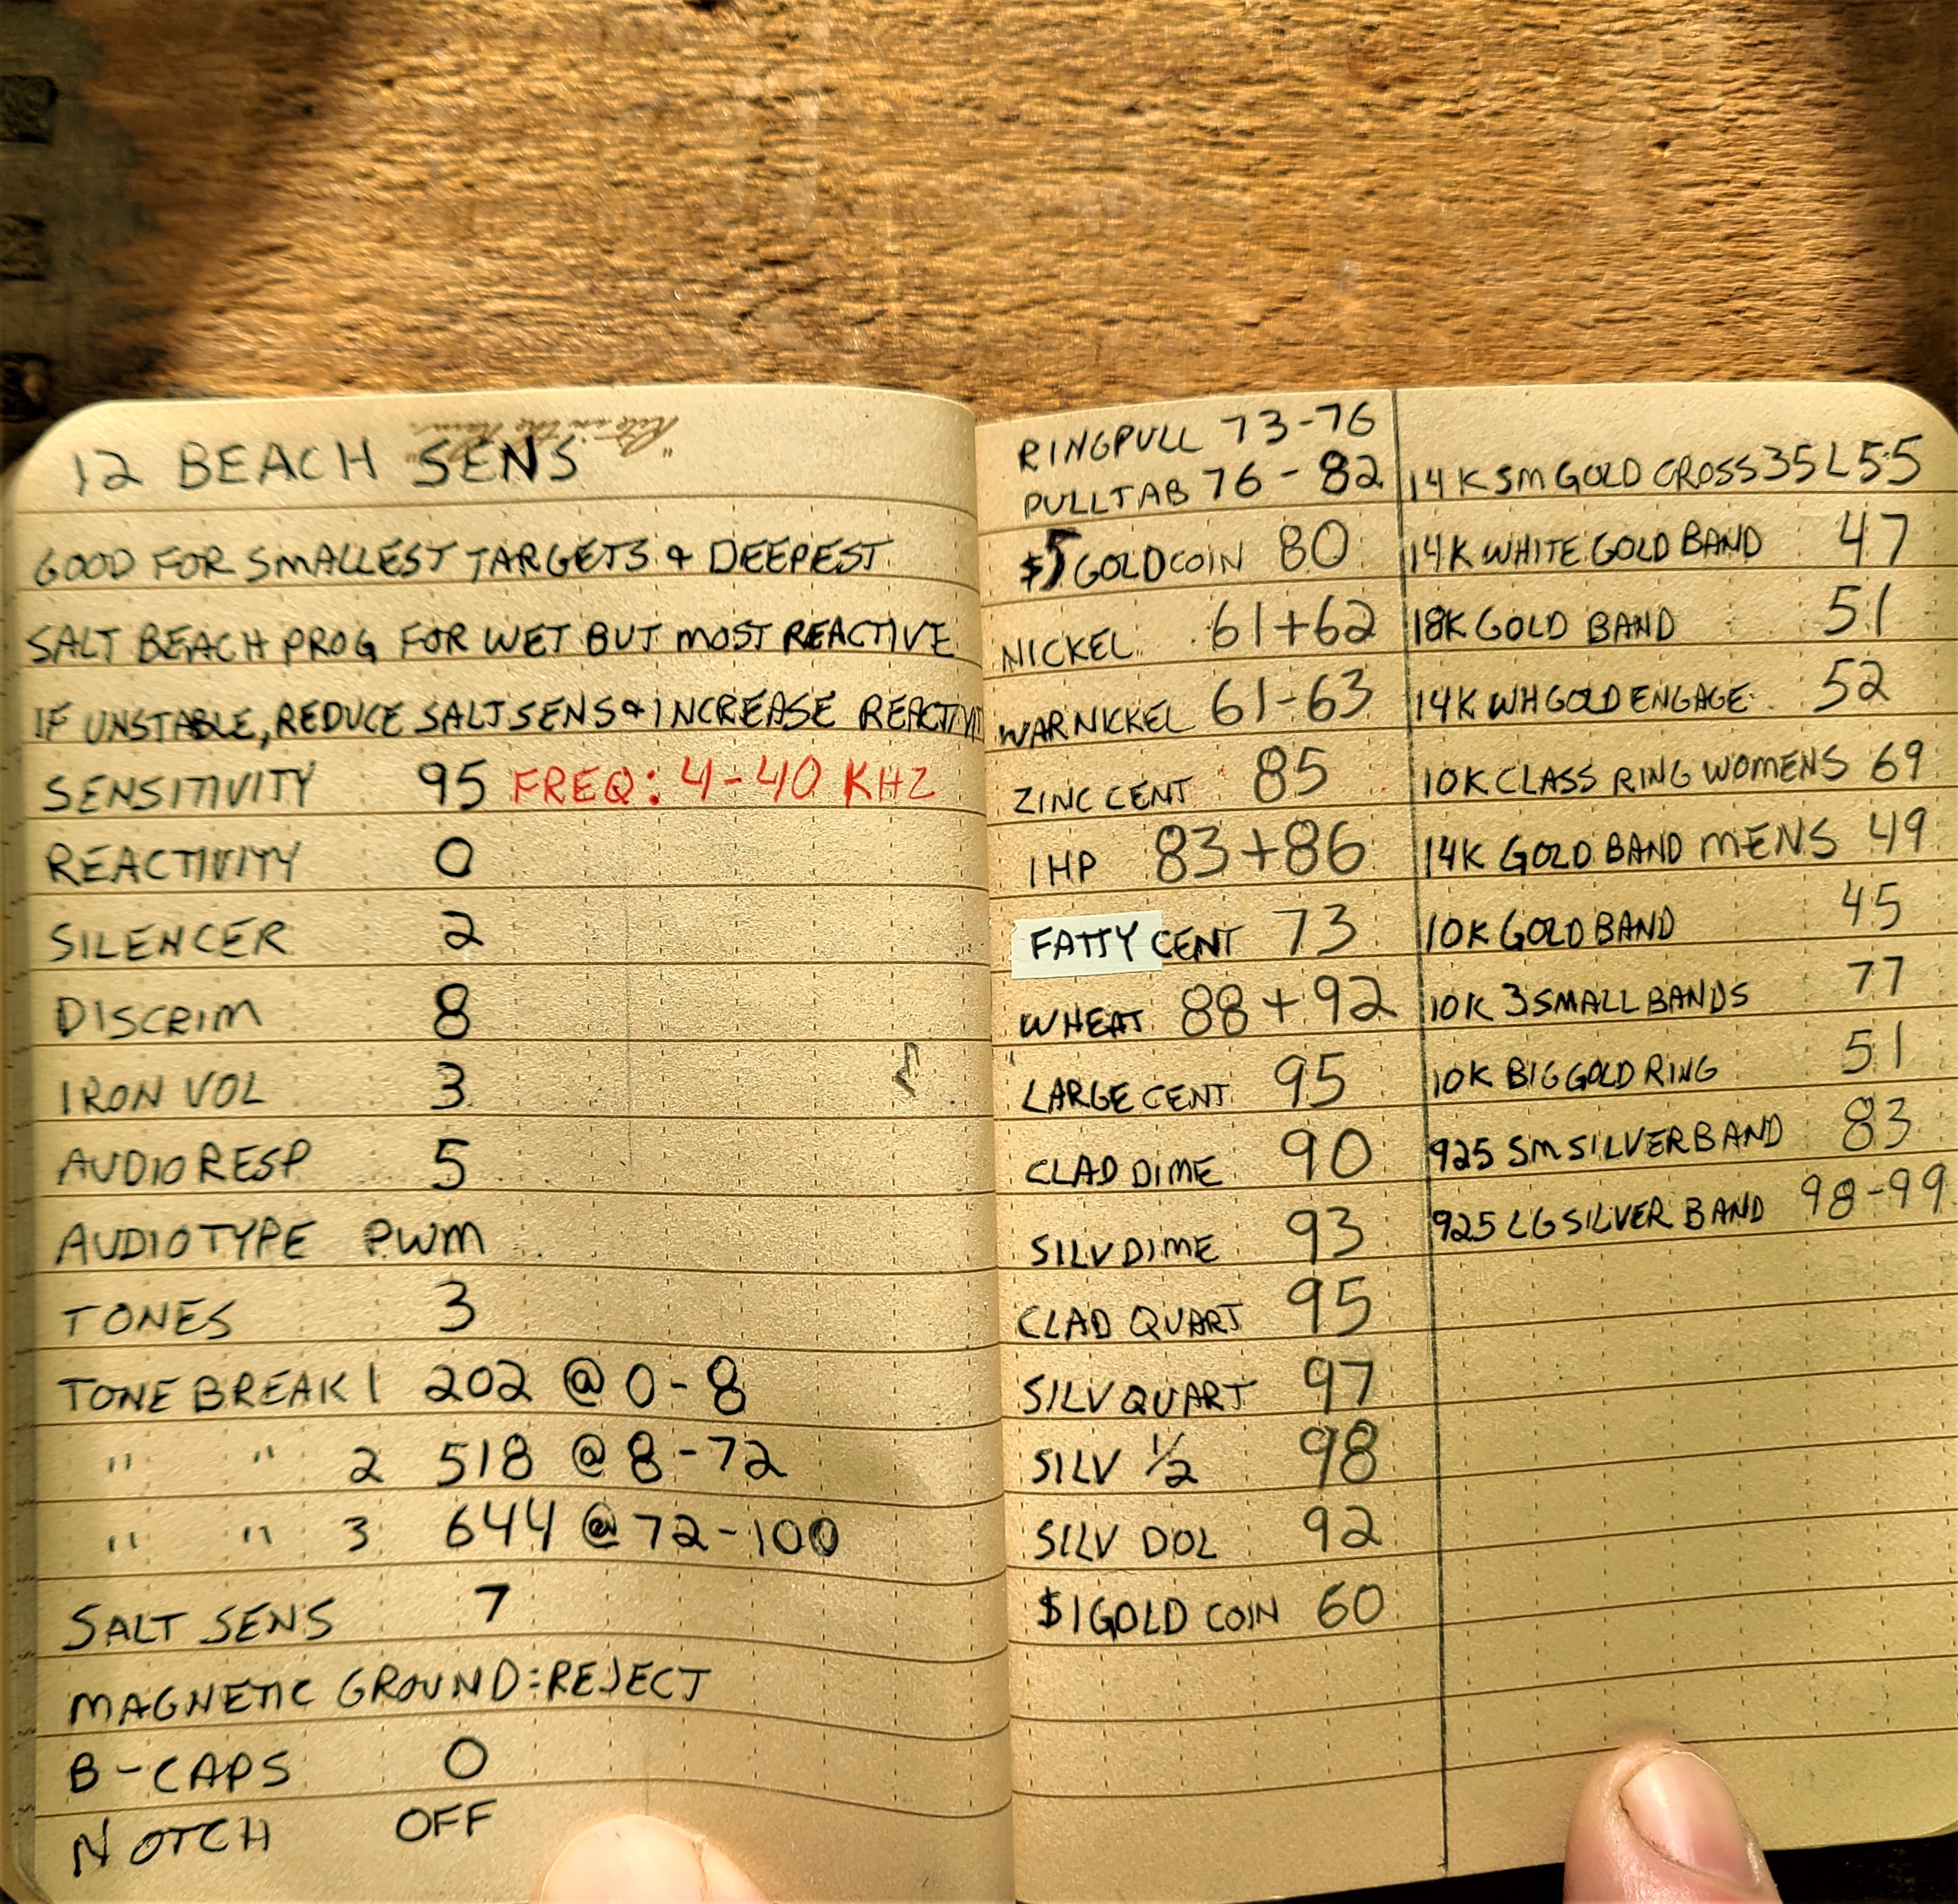 "Rite in the Rain"
12 BEACH SENS
GOOD FOR SMALLEST TARGETS & DEEPEST
SALT BEACH PROG FOR WET BUT MOST REACTIVE
IF UNSTABLE, REDUCE SALT SENS & INCREASE
SENSITIVITY 95 FREQ: 4-40 KHZ
REACTIVITY 0
SILENCER 2
DISCRIM 8
IRON VOL 3
AUDIO RESP 5
AUDIO TYPE PWM
TONES 3
TONE BREAK 1 202 @ 0-8
" " 2 518 @ 8-72
" " 3 644 @ 72-100
SALT SENS 7
MAGNETIC GROUND: REJECT
B-CAPS 0
NOTCH OFF
RINGPULL 73-76
PULLTAB 76-82
$5 GOLD COIN 80
NICKEL 61+62
WAR NICKEL 61-63
ZINC CENT 85
IHP 83+86
FATTY CENT 73
WHEAT 88+92
LARGE CENT 95
CLAD DIME 90
SILV DIME 93
CLAD QUART 95
SILV QUART 97
SILV 1/2 98
SILV DOL 92
$1 GOLD COIN 60
14K SM GOLD CROSS 35 L 55
14K WHITE GOLD BAND 47
18K GOLD BAND 51
14K WH GOLD ENGAGE 52
10K CLASS RING WOMENS 69
14K GOLD BAND MENS 49
10K GOLD BAND 45
10K 3 SMALL BANDS 77
10K BIG GOLD RING 51
925 SM SILVER BAND 83
925 LG SILVER BAND 98-99